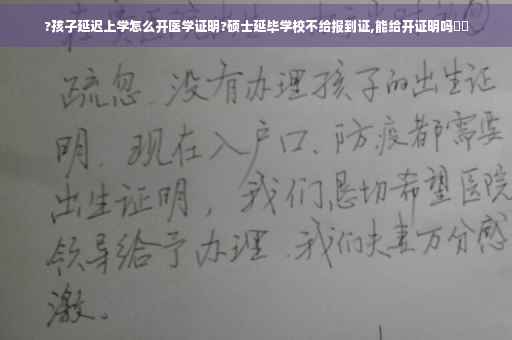 ?孩子延迟上学怎么开医学证明?硕士延毕学校不给报到证,能给开证明吗
疏忽、没有办理孩子的出生证
明。现在入户口、防疫都需要
出生证明，我们恳切希望医院
领导给予办理、我们夫妻万分感
激。